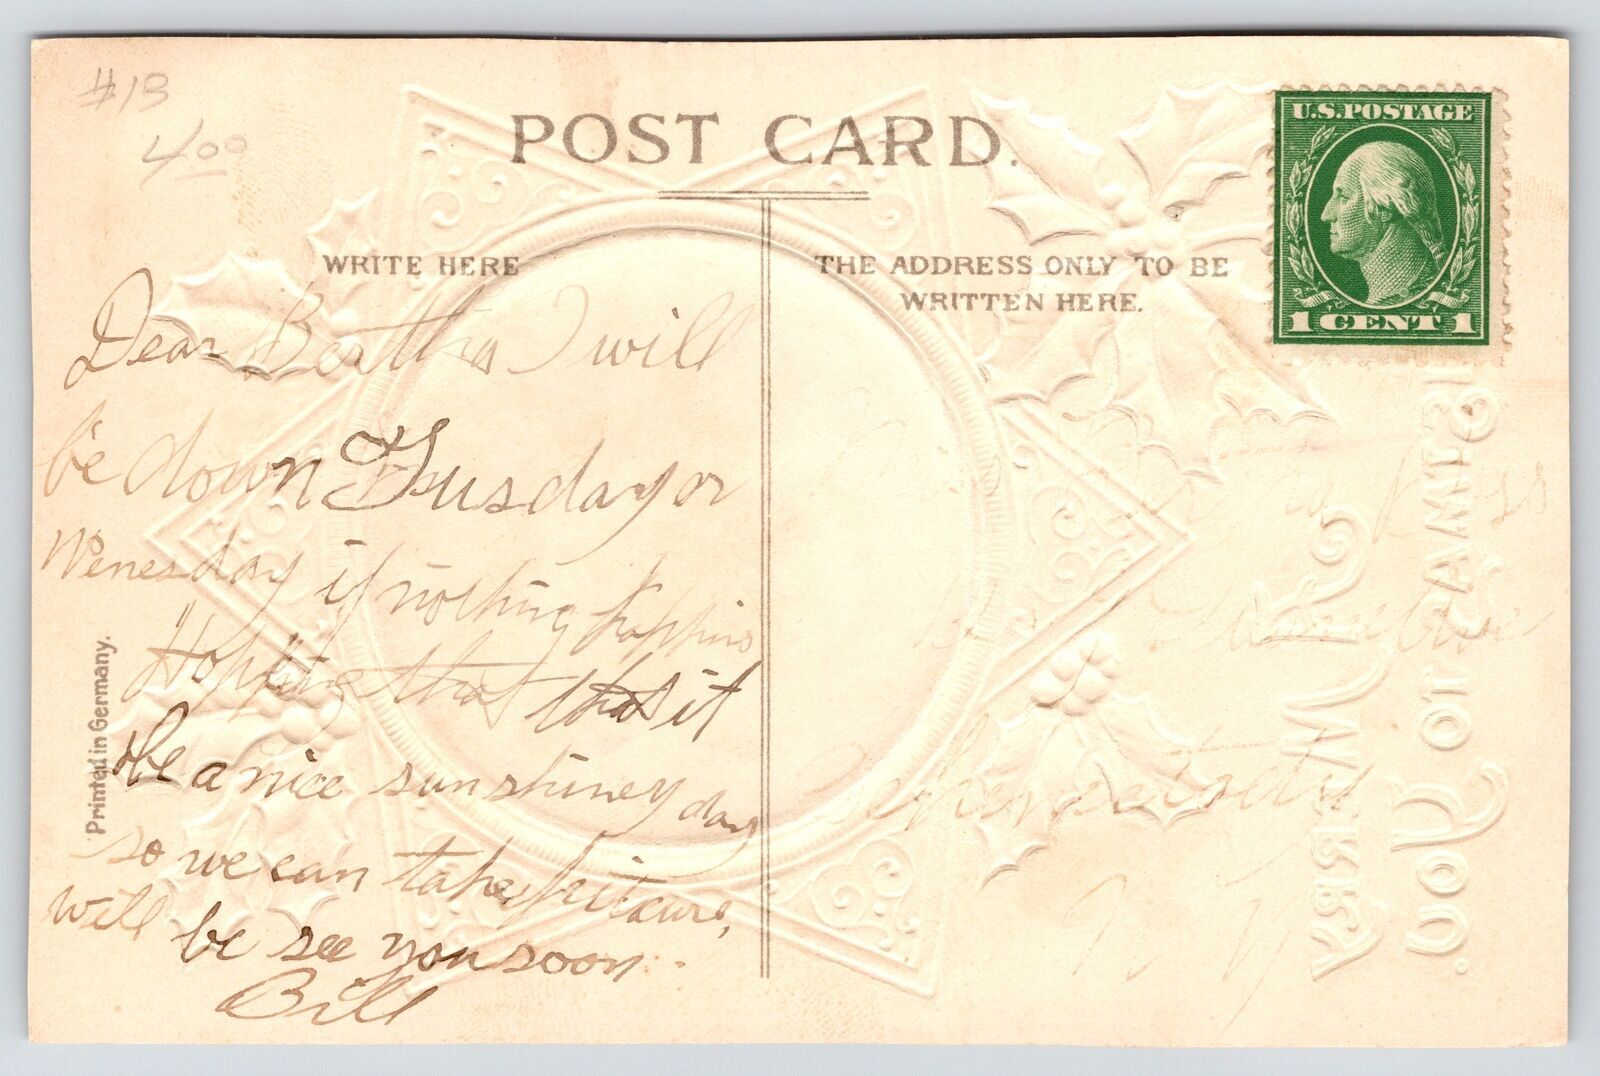 #13
4 00
POST CARD.
U.S. POSTAGE
1 CENT 1
WRITE HERE
THE ADDRESS ONLY TO BE
WRITTEN HERE.
Dear Bertha I will
be down Tusday or
Wenesday if nothing happins
Hopping that that it
be a nice sunshiney day
so we can take pitcure,
will be see you soon.
Bill
Printed in Germany.
Ross
Ave
Schenectady
N. Y.
A Merry
XMAS TO You.